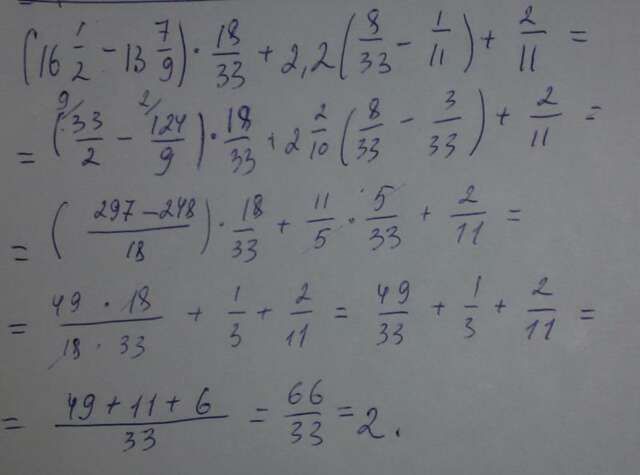 (16 1/2 - 13 7/9) · 18/33 + 2,2 (8/33 - 1/11) + 2/11 =
= (9/ 33/2 - 2/ 124/9) · 18/33 + 2 2/10 (8/33 - 3/33) + 2/11 =
= ( (297 - 248)/18 ) · 18/33 + 11/5 · 5/33 + 2/11 =
= (49 · 18)/(18 · 33) + 1/3 + 2/11 = 49/33 + 1/3 + 2/11 =
= (49 + 11 + 6)/33 = 66/33 = 2.